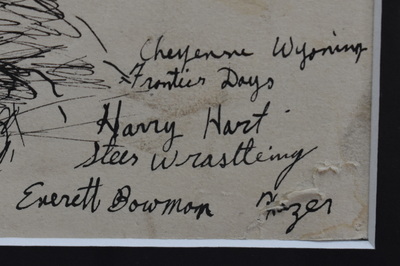 Cheyenne Wyoming
Frontier Days
Harry Hart
Steer Wrastleing
Everett Bowman